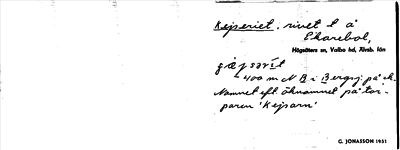 Kejseriet. rivet t å
Ekarebol,
Högsäters sn, Valbo hd, Älvsb. län
400 m N B i Bergsj. på
Namnet eft. öknamnet på tor-
paren 'Kejsarn'
G. JONASSON 1951